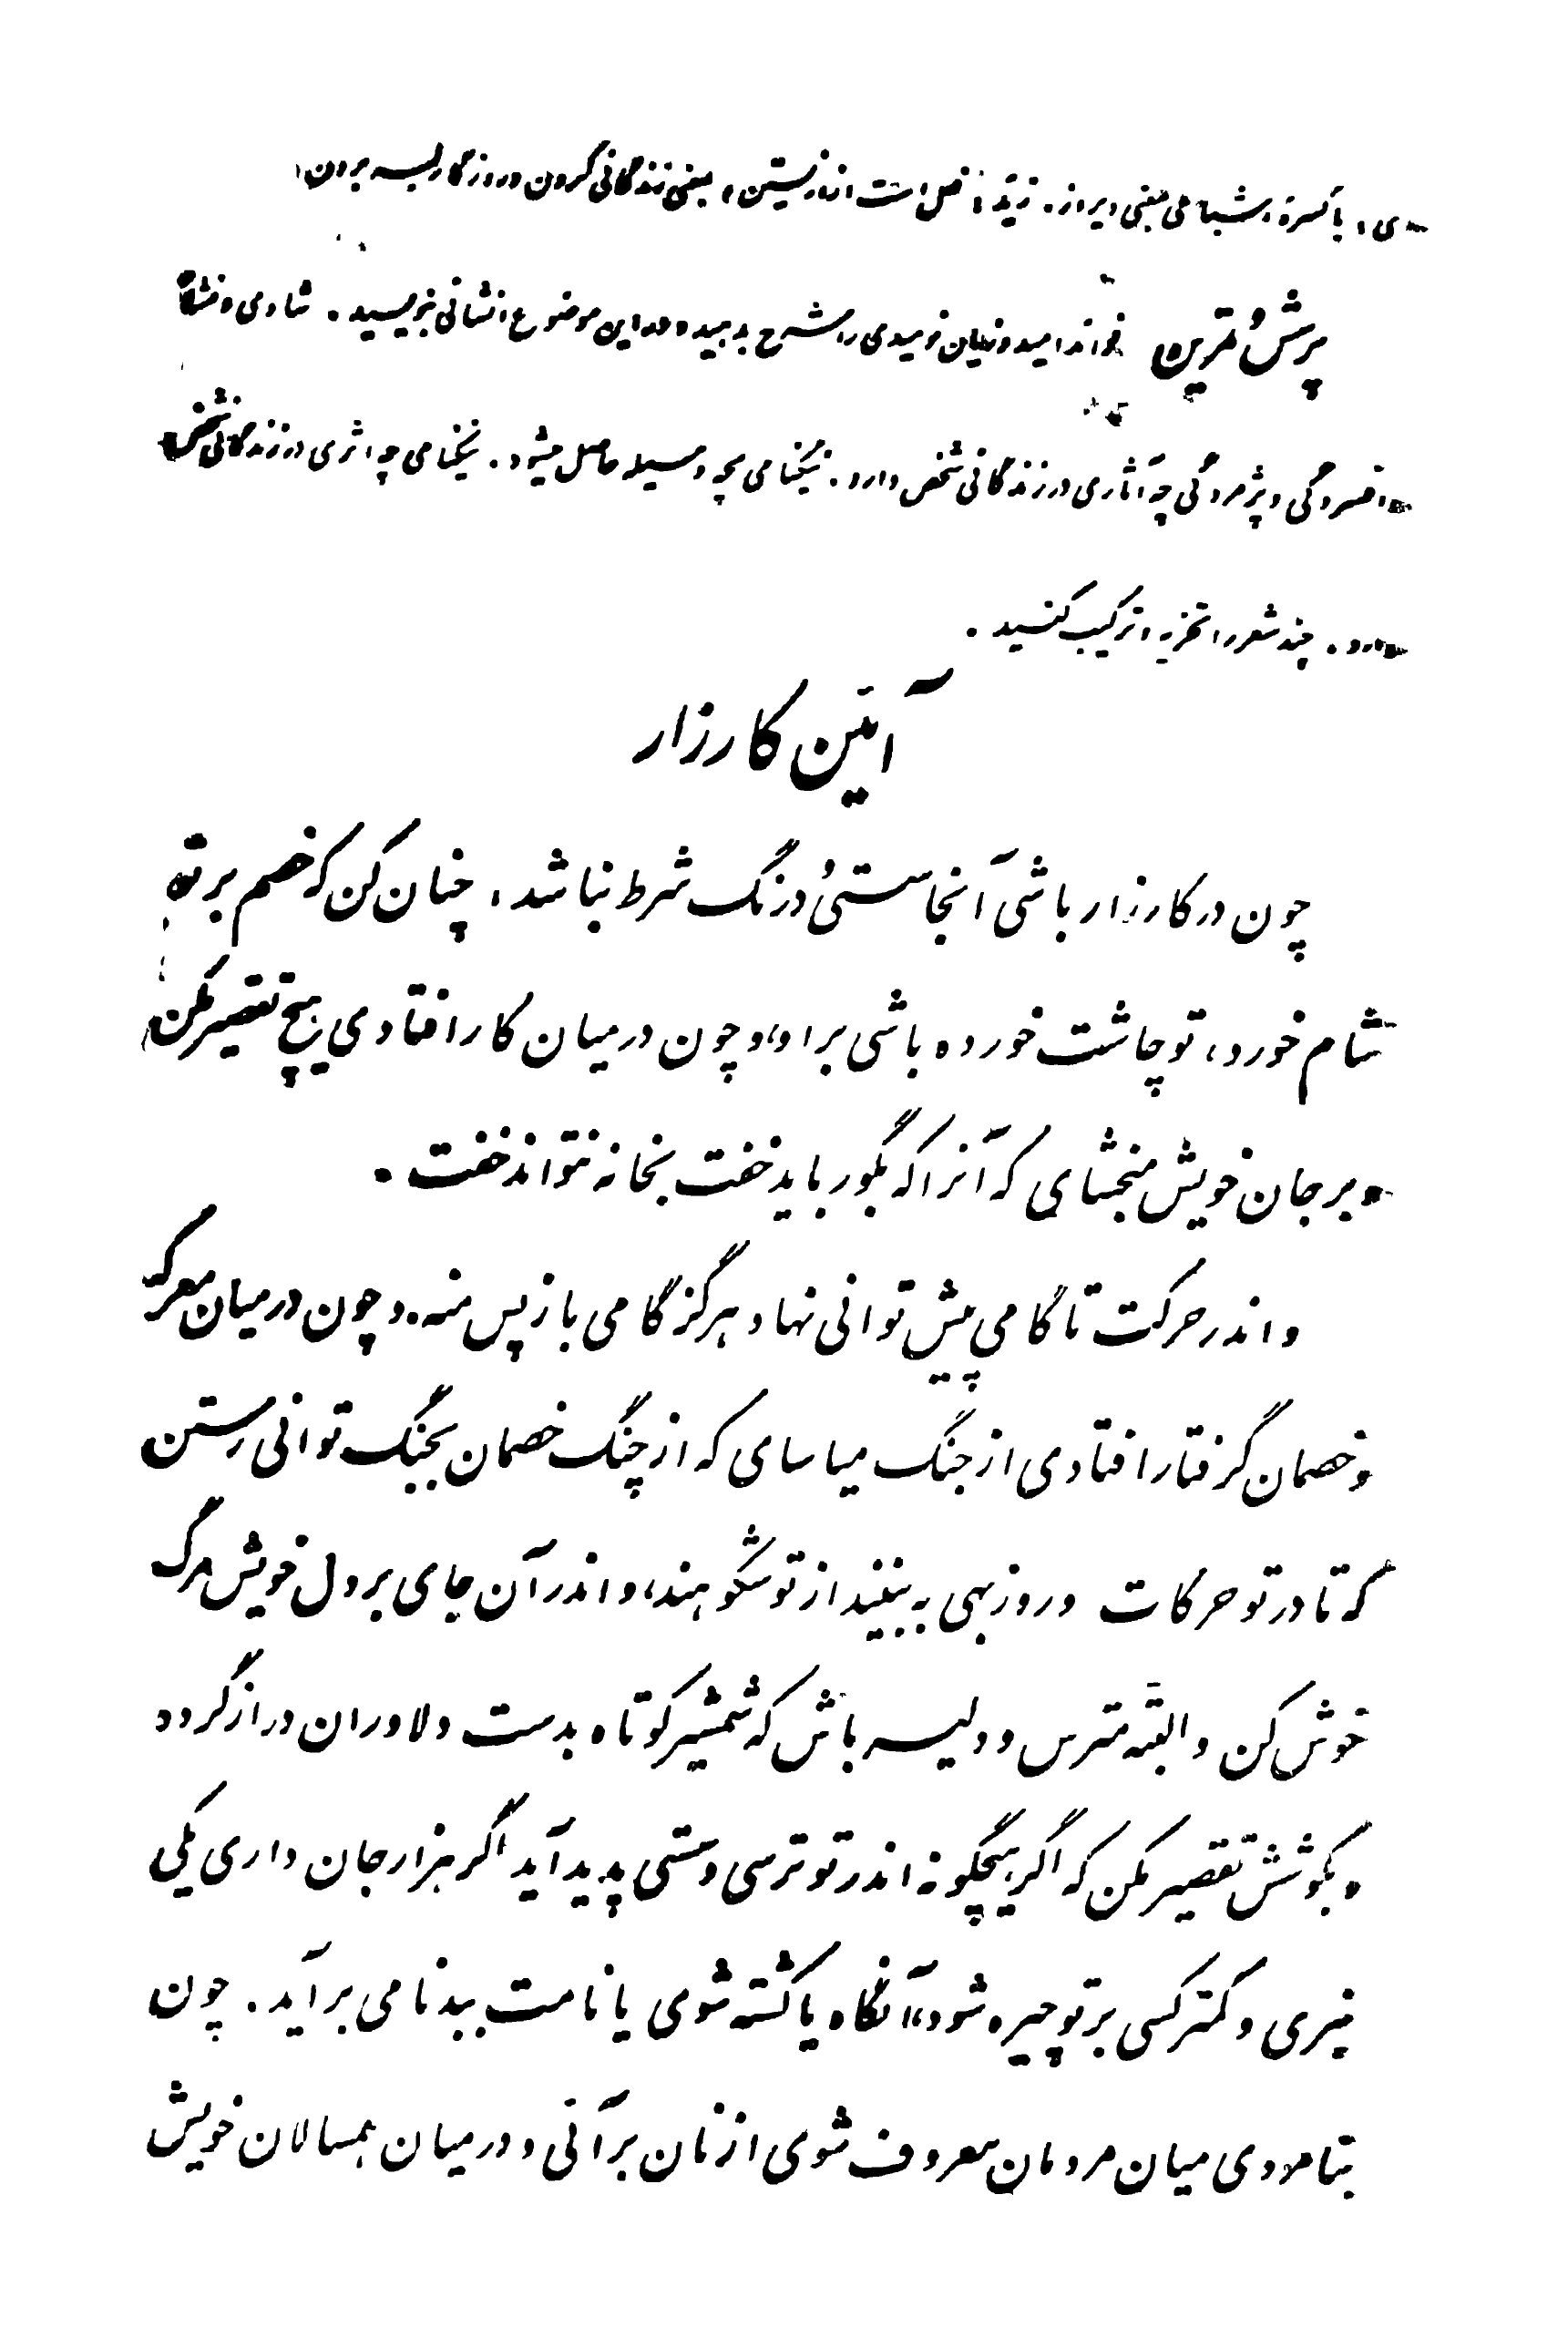 دی، با کسرهٔ اشباعی یعنی دیروز. زید: فعل است از زیستن، یعنی زندگانی کردن و روزگار بسر بردن،
پرسش و تمرین فوائد امید و زیان نومیدی را شرح بدهید و در این موضوع انشائی بنویسید. شادی و نشاط
و افسردگی و پژمردگی چه آثاری در زندگانی شخص دارد. نیکنامی بچه وسیله حاصل میشود. نیکنامی چه اثری در زندگانی شخص
دارد. چند شعر را تجزیه و ترکیب کنید.
آئین کارزار
چون در کارزار باشی آنجا سستی و درنگ شرط نباشد، چنان کن که خصم بر تو
شام خورد، تو چاشت خورده باشی بر او، و چون در میان کار افتادی هیچ تقصیر مکن
و بر جان خویش مبخشای که آنرا که بگور باید خفت بخانه نتواند خفت.
و اندر حرکت تا گامی پیش توانی نهاد هرگز گامی باز پس منه. و چون در میان معرکه
و خصمان گرفتار افتادی از جنگ میاسای که از چنگ خصمان بجنگ توانی رستن
که تا در تو حرکات و روزبهی به بینند از تو شکوهند، و اندر آن جای بر دل خویش مرگ
خوش کن و البته مترس و دلیر باش که شمشیر کوتاه بدست دلاوران دراز گردد
و بکوشش تقصیر مکن که اگر هیچگونه اندر تو ترسی و سستی پدید آید اگر هزار جان داری یکی
نبری و کمتر کسی بر تو چیره شود، آنگاه یا کشته شوی یا نامت ببدنامی برآید. چون
بنامردی میان مردمان معروف شوی از نان برآئی و در میان همسالان خویش